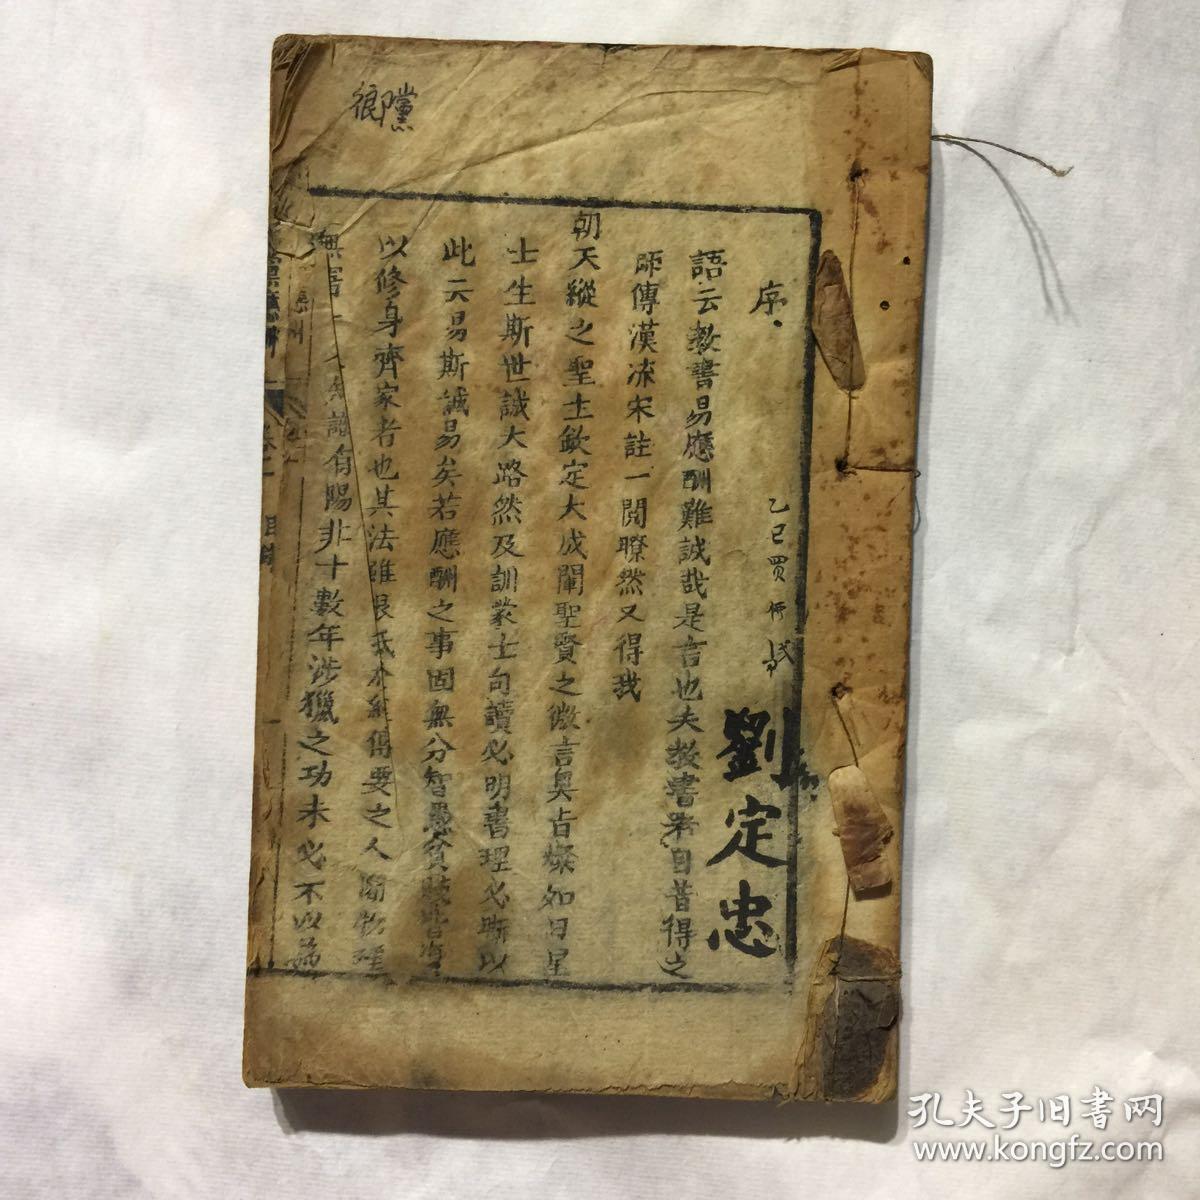 序
乙巳買
劉定忠
語云教書易應酬難誠哉是言也夫教書者自昔得之
師傳漢流宋註一閱瞭然又得我
朝天縱之聖主欽定大成闡聖賢之微言奧旨燦如日星
士生斯世誠大路然及訓蒙士句讀必明書理必晰以
此云易斯誠易矣若應酬之事固無分智愚貧賤皆
以修身齊家者也其法雖 要之人 物理
無害 陽非十數年涉獵之功未必不以為
孔夫子旧書网
www.kongfz.com